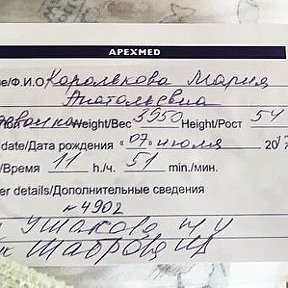 APEXMED
е/Ф.И.О Королькова Мария
Анатольевна
Weight/Вес 3950 Height/Рост 54
date/Дата рождения «07» июля 201
/Время 11 h./ч. 51 min./мин.
er details/Дополнительные сведения
к 4902
Ушакова